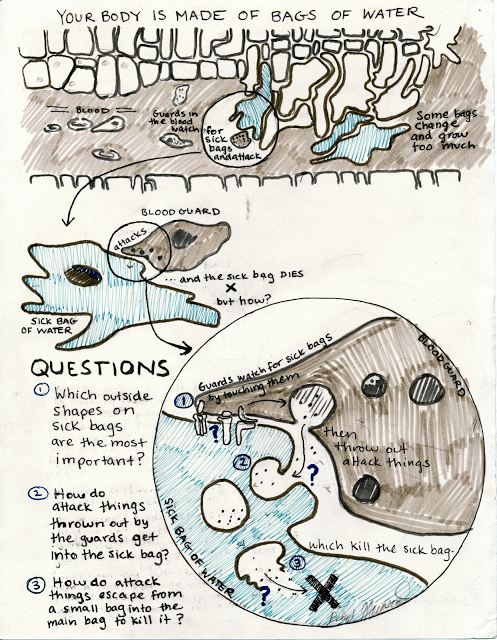 YOUR BODY IS MADE OF BAGS OF WATER
BLOOD
Guards in
the blood
watch for
sick
bags
and attack
Some bags
change
and grow
too much
BLOOD GUARD
attacks
... and the sick bag DIES
X
but how?
SICK BAG
OF WATER
QUESTIONS
1 Which outside
shapes on
sick bags
are the most
important?
2 How do
attack things
thrown out by
the guards get
into the sick bag?
3 How do attack
things escape from
a small bag into the
main bag to kill it?
Guards watch for sick bags
by touching them
BLOOD GUARD
1
?
then
throw out
attack things
2
?
which kill the sick bag.
SICK BAG OF WATER
3
?
X